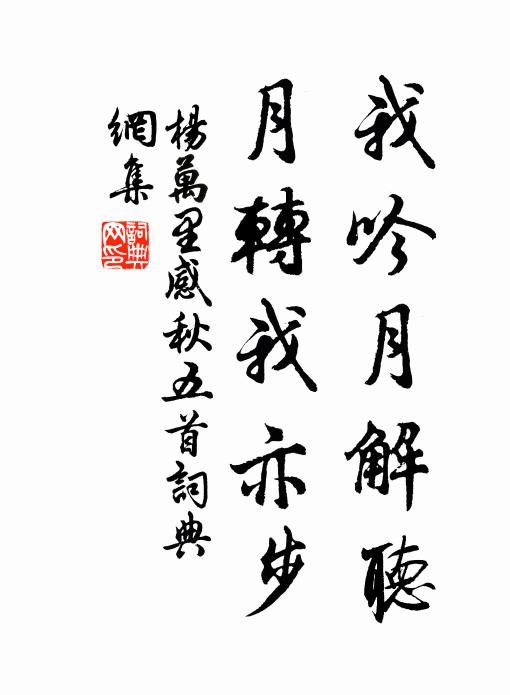 我吟月解聽
月轉我亦步
楊萬里感秋五首詞典
網集
詞典
网印